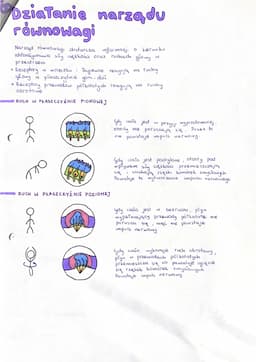 Działanie narządu
równowagi
Narząd równowagi dostarcza informacji o kierunku
oddziaływania siły ciężkości oraz ruchach głowy w
przestrzeni
• Receptory w woreczku i łagiewce reagują na ruchy
głowy w płaszczyźnie góra-dół
• Receptory przewodów półkolistych reagują na ruchy
obrotowe
RUCH W PŁASZCZYŹNIE PIONOWEJ
Gdy ciało jest w pozycji wyprostowanej,
otolity nie poruszają się. Przez to
nie powstaje impuls nerwowy
Gdy ciało jest pochylone, otolity pod
wpływem siły ciężkości przemieszczają
się i uciskają rzęski komórek zmysłowych
Powoduje to wytworzenie impulsu nerwowego
RUCH W PŁASZCZYŹNIE POZIOMEJ
Gdy ciało jest w bezruchu, płyn
wypełniający przewody półkoliste nie
porusza się, więc nie powstaje
impuls nerwowy
Gdy ciało wykonuje ruch obrotowy,
płyn w przewodach półkolistych
przemieszcza się co powoduje
się rzęsek komórek zmysłowych
Powstaje impuls nerwowy